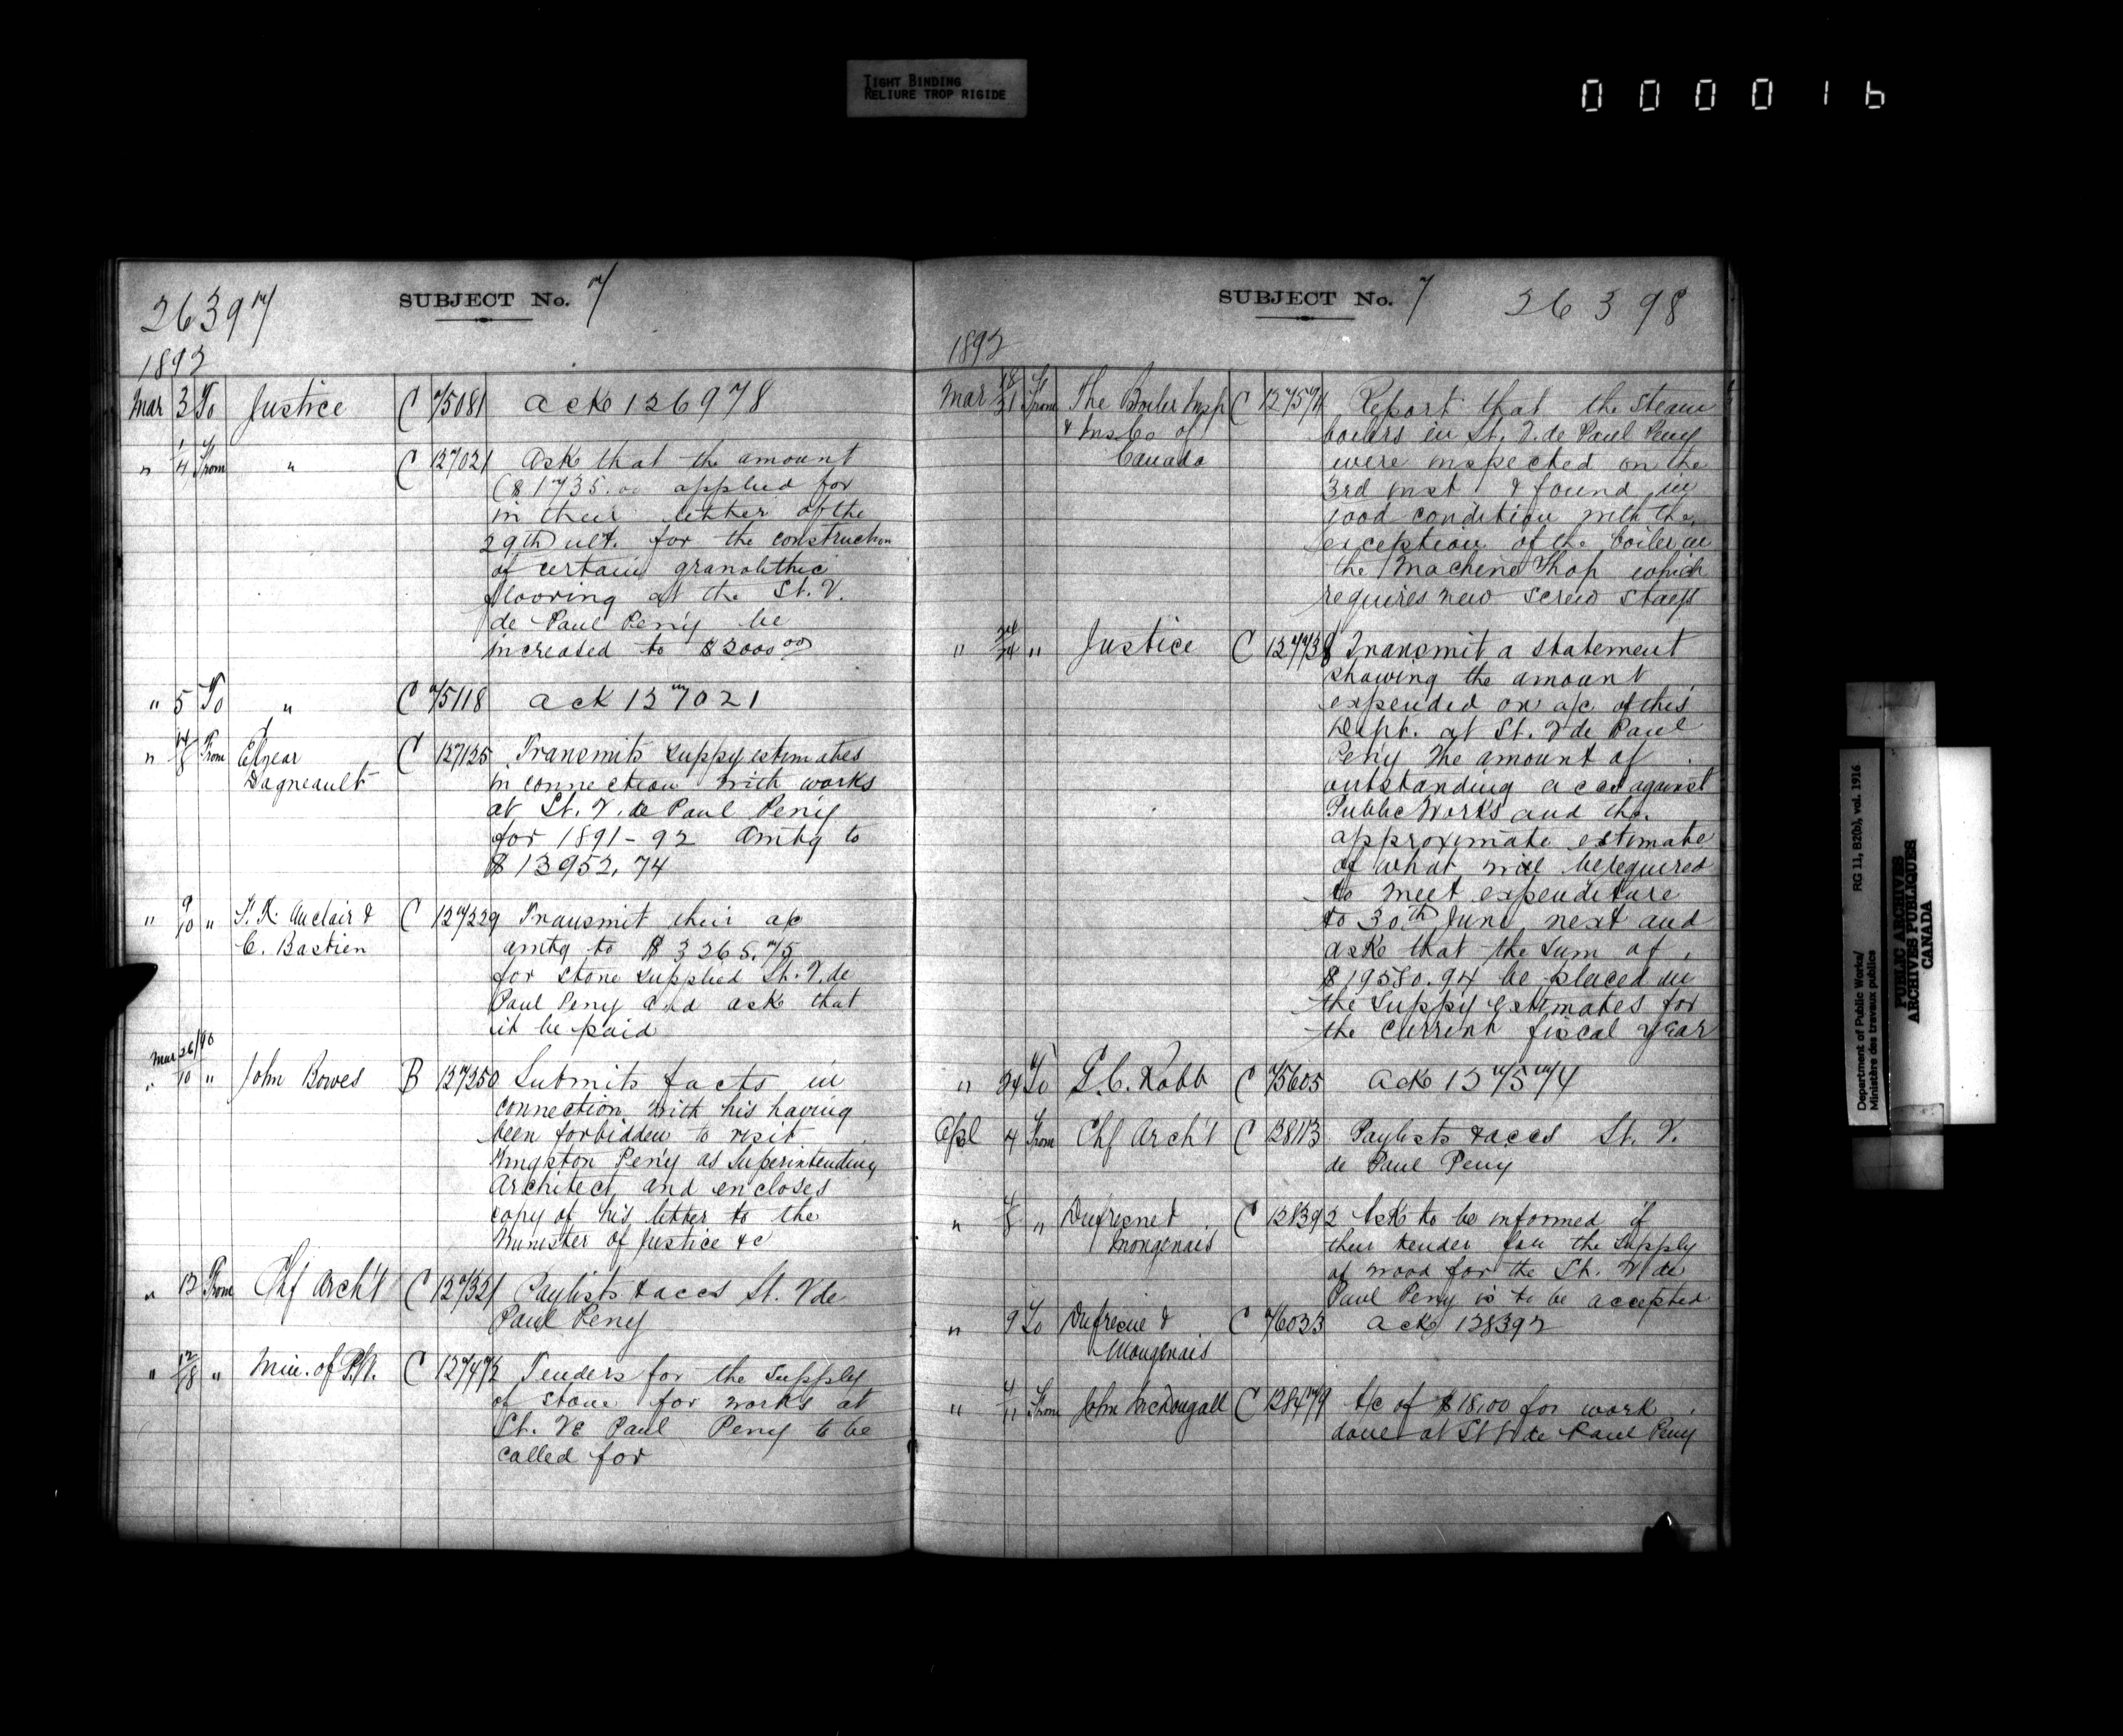 TIGHT BINDING
RELIURE TROP RIGIDE
000016
26397
SUBJECT No. 7
1892
Mar 3 To Justice C 75081 Ack 126978
" 1/4 From " C 127021 Ask that the amount
($1735.00 applied for
in their letter of the
29th ult. for the construction
of certain granolithic
flooring at the St. V.
de Paul Peny be
increased to $2000.00
" 5 To " C 75118 Ack 127021
" From Elzear C 127125 Transmits suppy estimates
Dagneault in connection with works
at St. V. de Paul Peny
for 1891-92 amtg to
$13952.74
" 9/10 " Auclair & C 127229 Transmit their a/c
C. Bastien amtg to $3265.75
for stone supplied St. V. de
Paul Peny and ask that
it be paid
Mar 26/90
" 10 " John Bowes B 127250 Submits facts in
connection with his having
been forbidden to visit
Kingston Peny as Superintending
Architect and encloses
copy of his letter to the
Minister of Justice &c
" 12 From Chf Arch't C 127321 Paylists & accs St. V de
Paul Peny
" 12/18 " Min. of P.W. C 127472 Tenders for the supply
of stone for works at
St. V de Paul Peny to be
called for
SUBJECT No. 7
26398
1892
Mar 18/21 From The Boiler Insp C 127574 Report that the steam
& Ins Co of boilers in St. V. de Paul Peny
Canada were inspected on the
3rd inst & found in
good condition with the
exception of the boiler in
the Machine Shop which
requires new screw stays
" " Justice C 127738 Transmit a statement
showing the amount
expended on a/c of this
Dept. at St. V de Paul
Peny the amount of
outstanding accs against
Public Works and the
approximate estimate
of what will be required
to meet expenditure
to 30th June next and
ask that the sum of
$19580.94 be placed in
the suppy estimates for
the current fiscal year
" 24 To G. C. Robb C 75605 Ack 127574
Apl 4 From Chf Arch't C 128113 Paylists & accs St. V.
de Paul Peny
" " Dufresne & C 128392 Ask to be informed if
Mongenais their tender for the supply
of wood for the St. V de
Paul Peny is to be accepted
" 9 To Dufresne & C 76023 Ack 128392
Mongenais
" From John McDougall C 128479 A/c of $18.00 for work
done at St V de Paul Peny
Department of Public Works/ RG 11, B2(b), vol. 1916
Ministère des travaux publics
PUBLIC ARCHIVES
ARCHIVES PUBLIQUES
CANADA